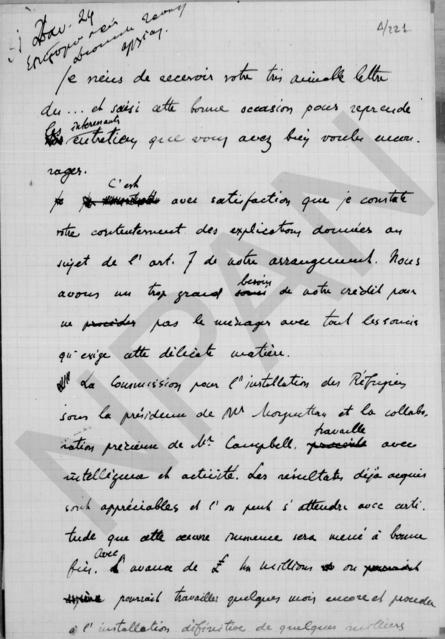 Δ/221
Ιαν. 24
Je viens de recevoir votre très aimable lettre
du ... et saisi cette bonne occasion pour reprendre
les intéressants
entretiens que vous avez bien voulu encou-
rager.
C'est
avec satisfaction que je constate
votre contentement des explications données au
sujet de l'art. 7 de notre arrangement. Nous
besoin
avons un trop grand de notre crédit pour
ne pas le ménager avec tout les soucis
qu'exige cette délicate matière.
La Commission pour l'installation des Réfugiés
sous la présidence de Mr Morgenthau et la collabo-
travaille
ration précieuse de Mr Campbell avec
intelligence et activité. Les résultats déjà acquis
sont appréciables et l'on peut s'attendre avec certi-
tude que cette œuvre immense sera mené à bonne
fin. Avec
l'avance de £ un million on
pourrait travailler quelques mois encore et procéder
à l'installation définitive de quelques milliers
NPAN